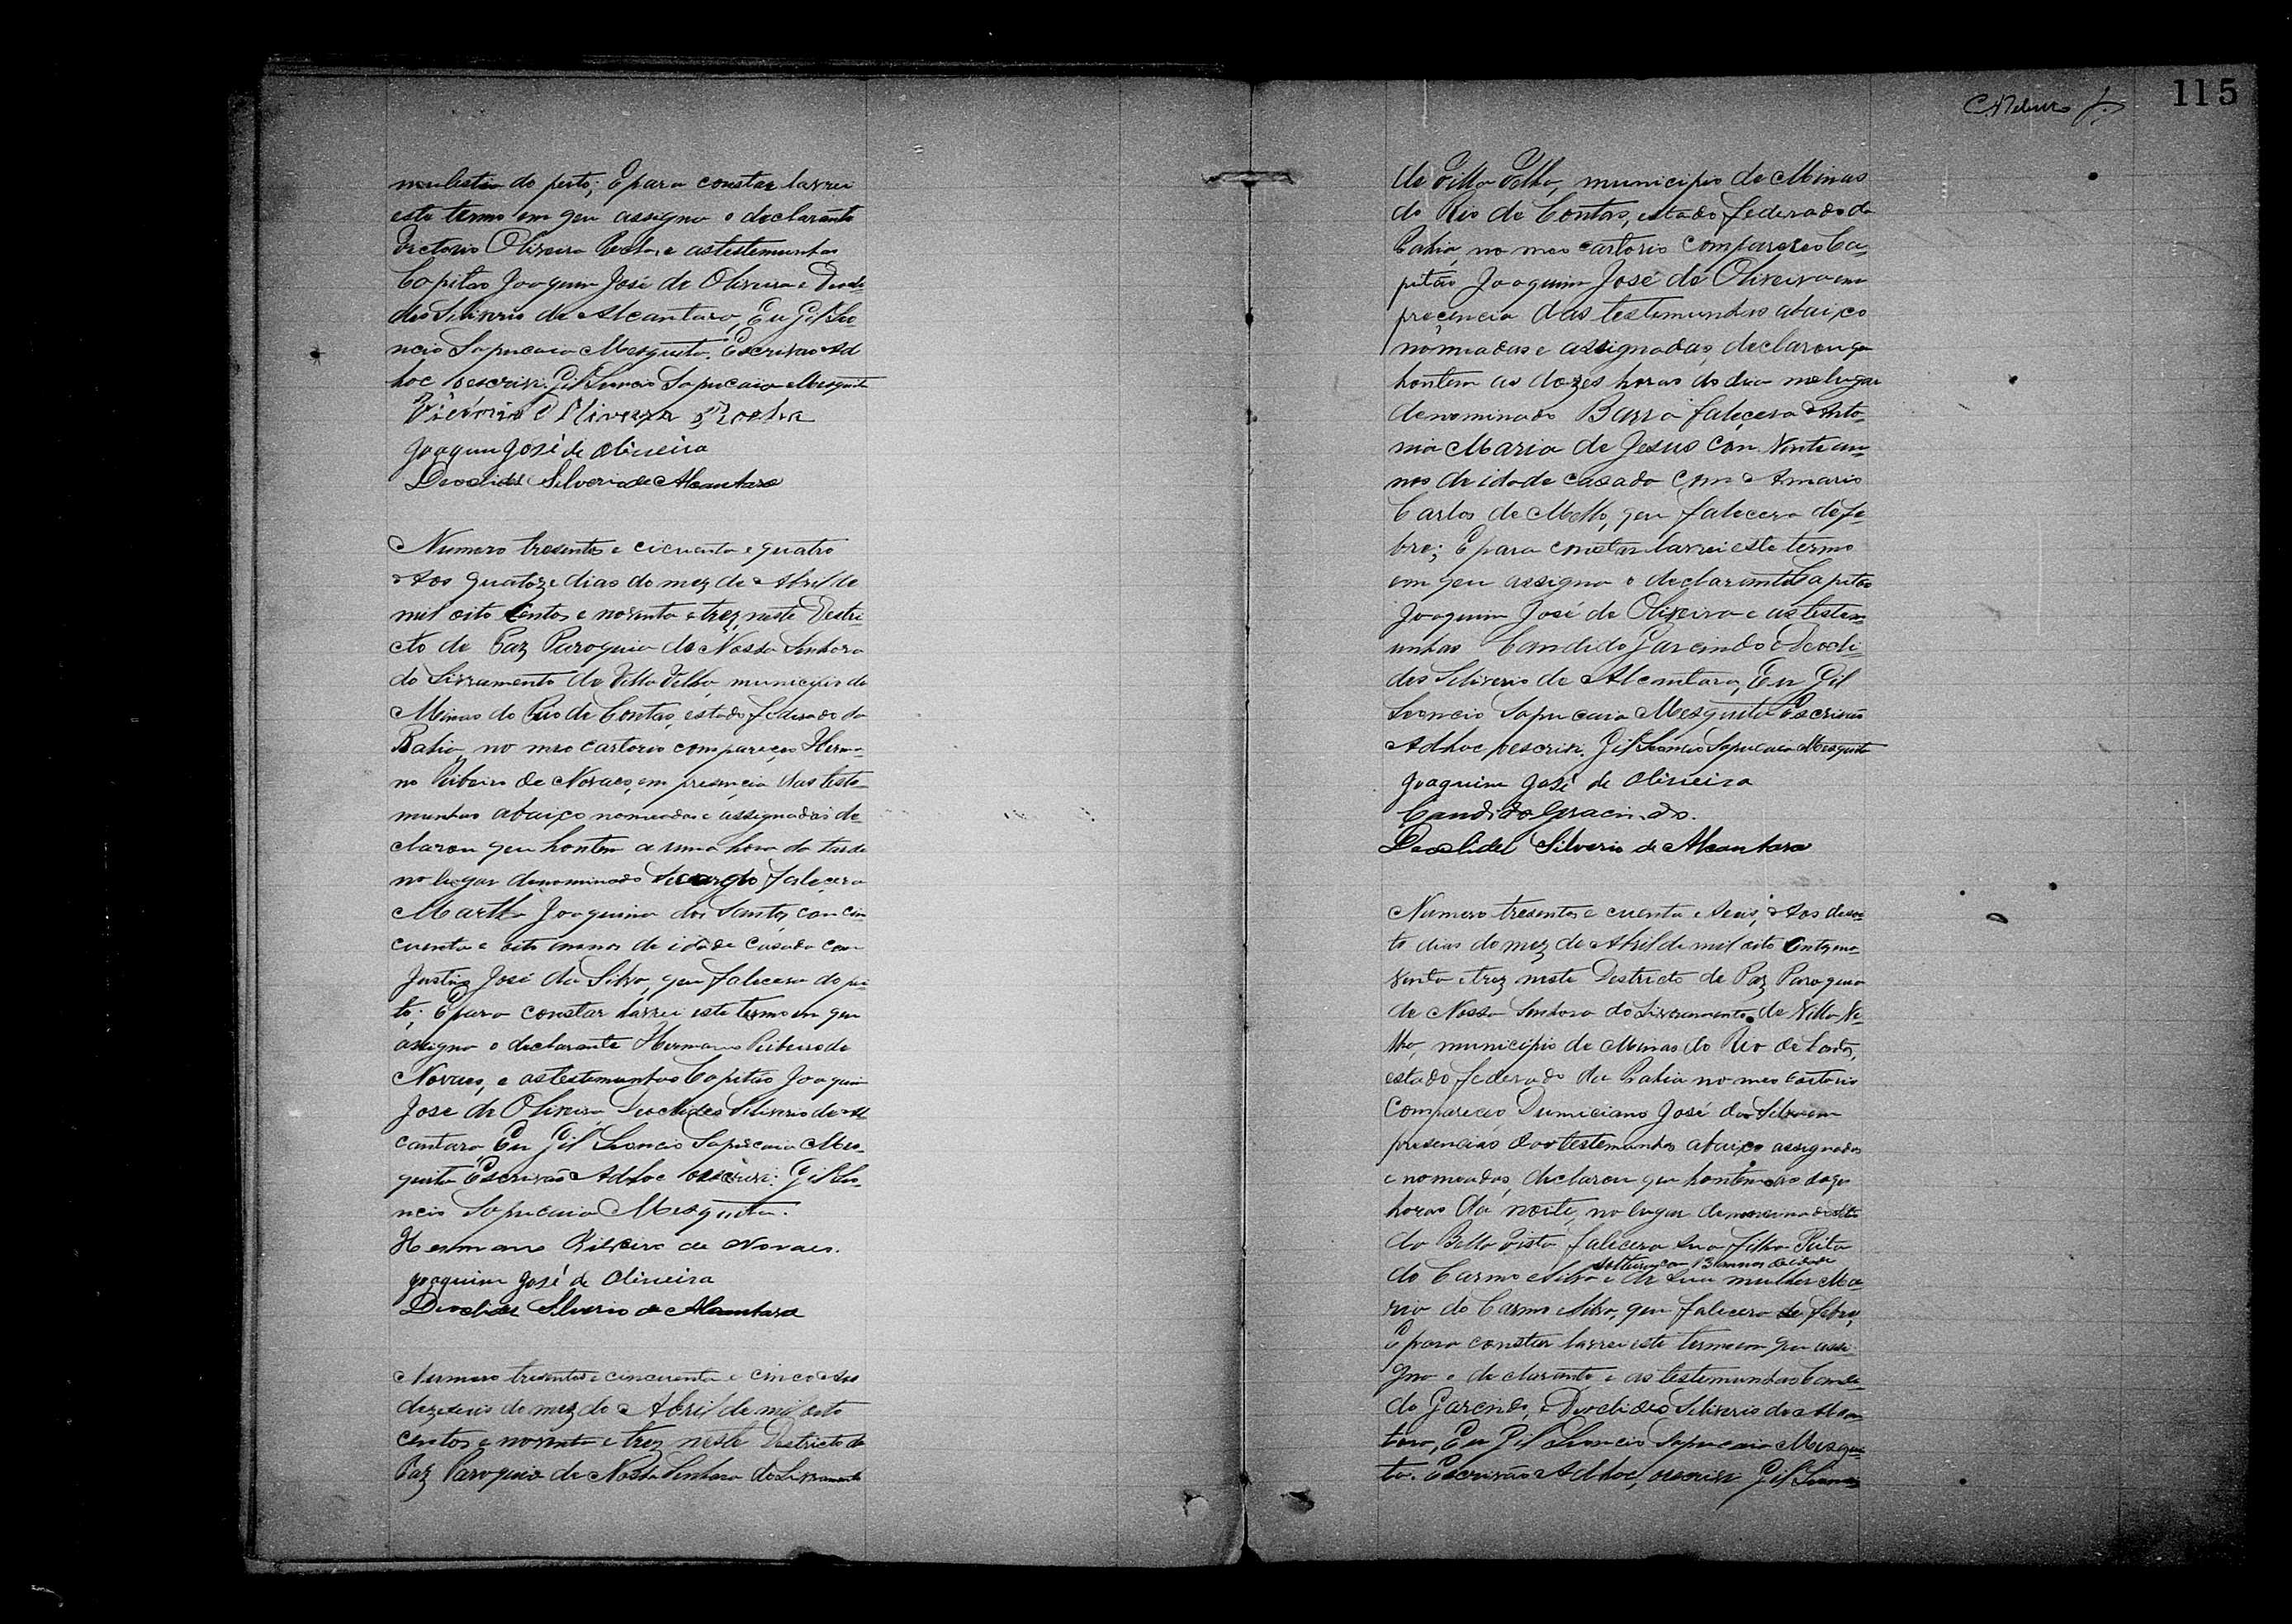 molestia do peito; E para constar lavrei
este termo em que assigno o declarante
Victorio Oliveira Rocha, e as testemunhas
Capitão Joaquim José de Oliveira e Deocli-
des Silverio de Alcantara, Eu Gil Leo
ncio Sapucaia Mesquita. Escrivão Ad
hoc o escrevi. Gil Leoncio Sapucaia Mesquita
Victorio Oliveira Rocha
Joaquim José de Oliveira
Deoclides Silverio de Alcantara
Numero tresentos e cicuenta e quatro
Aos quatoze dias do mez de Abril de
mil oito centos e noventa e trez, neste Destri-
cto de Paz Paroquia de Nossa Senhora
do Livramento de Villa Velha, municipio de
Minas do Rio de Contas, estado federado da
Bahia, no meo cartorio compareceo Herma-
no Ribeiro de Novaes, em presencia das teste-
munhas abaixo nomeadas e assignadas de-
clarou que hontem a uma hora da tarde
no lugar denominado falecera
Martha Joaquina dos Santos, com cin
cuenta e oito annos de idade casada com
Justino José da Silva, que falecera do pei
to; E para constar lavrei este termo em que
assigno o declarante Hermano Ribeiro de
Novaes, e as testemunhas Capitão Joaquim
José de Oliveira Deoclides Silverio de Al
cantara, Eu Gil Leoncio Sapucaia Mes-
quita Escrivão Adhoc o escrevi: Gil Leo-
ncio Sapucaia Mesquita.
Hermano Ribeiro de Novaes.
Joaquim José de Oliveira
Deoclides Silverio de Alcantara
Numero tresentos e cincuenta e cinco Aos
dezeseis do mez de Abril de mil oito
centos e noventa e trez neste Destricto de
Paz Paroquia de Nossa Senhora do Livramento
115
de Villa Velha, municipio de Minas
do Rio de Contas, estado federado da
Bahia, no meo cartorio compareceo Ca-
pitão Joaquim José de Oliveira em
preçencia das testemunhas abaixo
nomeadas e assignadas, declarou que
hontem as dozes horas do dia no lugar
denominado Barra falecera Anto-
nia Maria de Jesus com vinte an-
nos de idade casada com Amaro
Carlos de Mello, que falecera de fe-
bre; E para constar lavrei este termo
em que assigno o declarante Capitão
Joaquim José de Oliveira e as testem-
unhas Candido Garcindo e Deocli-
des Silverio de Alcantara, Eu Gil
Leoncio Sapucaia Mesquita Escrivão
Adhoc o escrevi. Gil Leoncio Sapucaia Mesquita
Joaquim José de Oliveira
Candido Gracindo.
Deoclides Silverio de Alcantara
Numero tresentos e cuenta e seis, Aos dezoi-
to dias do mez de Abril de mil oito centos no-
venta e trez neste Destricto de Paz Paroquia
de Nossa Senhora do Livramento de Villa Ve-
lha, municipio de Minas do Rio de Contas,
estado federado da Bahia no meo cartorio
compareceo Dumiciano José da Silva em
presencias das testemunhas abaixo assignadas
e nomeadas, declarou que hontem as doze
horas da noite, no lugar denominado
da Bella Vista falecera sua filha Rita
solteira com 13 annos de idade
do Carmo e Silva e de sua mulher Ma
ria do Carmo Silva, que falecera de febre,
E para constar lavrei este termo em que assi-
gno o declarante e as testemunhas Candi-
do Garcindo, e Deoclides Silverio de Alcan
tara, Eu Gil Leoncio Sapucaia Mesqui-
ta. Escrivão Adhoc, o escrevi Gil Leoncio